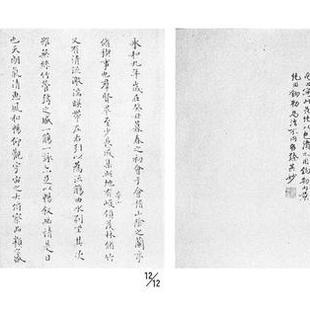 純用鉤勒
永和九年歲在癸丑暮春之初會于會稽山陰之蘭亭
脩禊事也群賢畢至少長咸集此地有崇山峻領茂林脩竹
又有清流激湍暎帶左右引以為流觴曲水列坐其次
雖無絲竹管弦之盛一觴一詠亦足以暢敘幽情是日
也天朗氣清惠風和暢仰觀宇宙之大俯察品類之盛
12/12